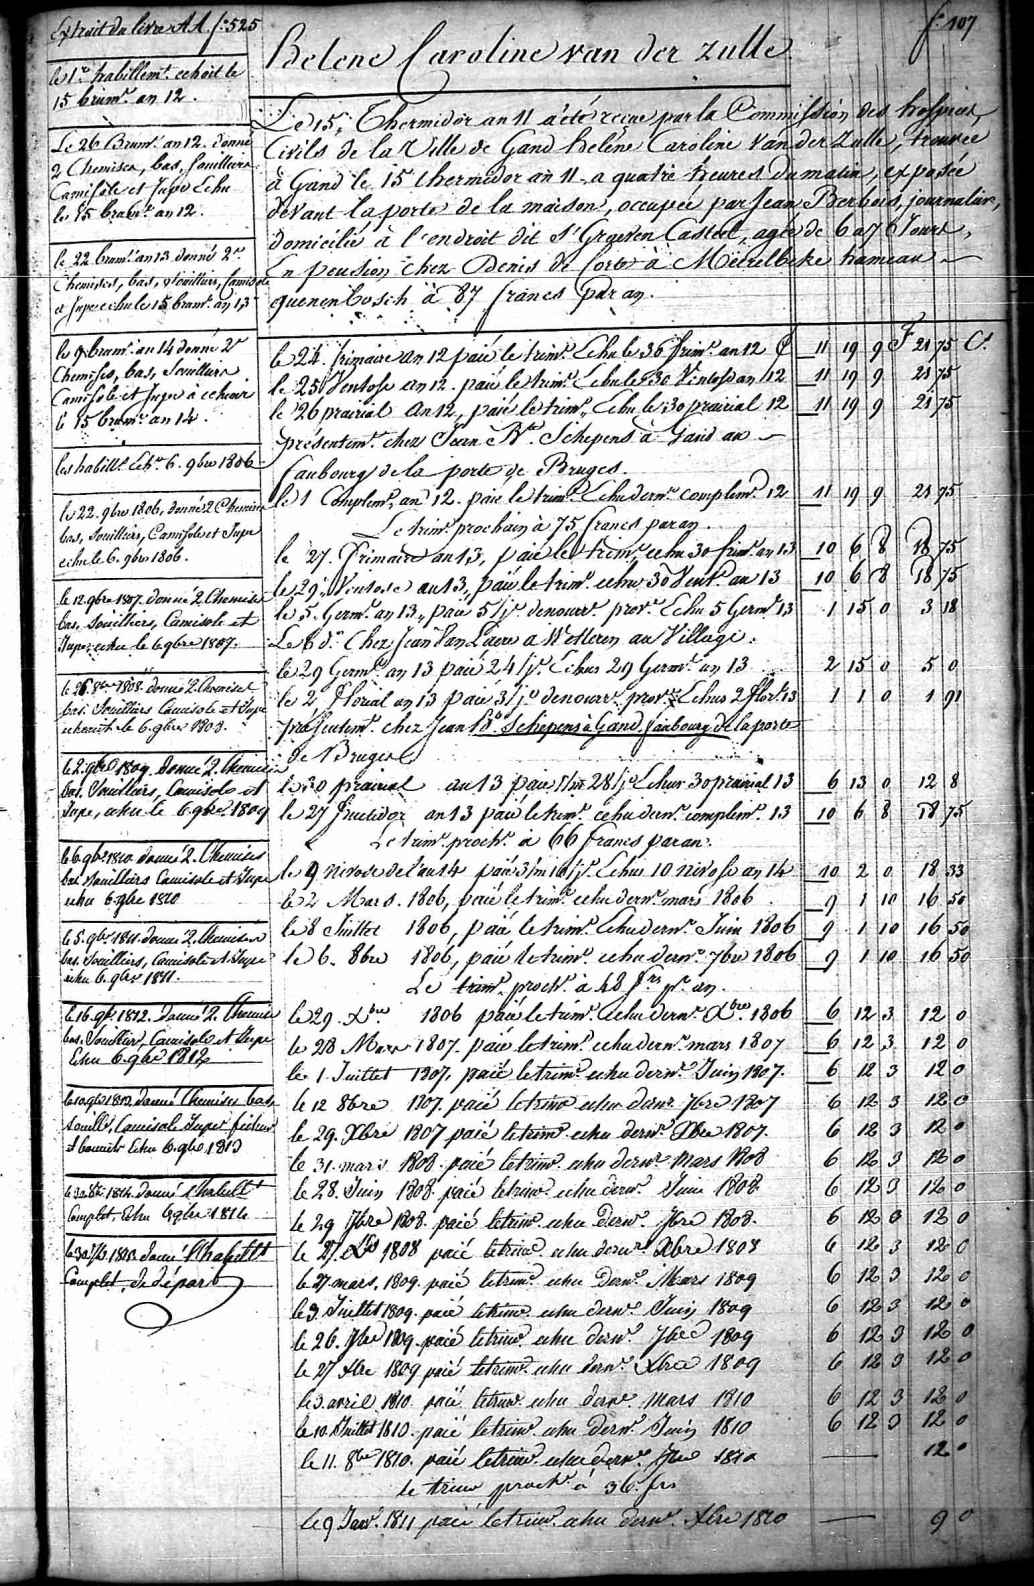 Extrait du livre AA. f.º 525
f.º 107
Helene Caroline van der Zulle
Le 15, Thermidor an 11 a été recue par la Commission des hospices
Civils de la Ville de Gand helene Caroline Van der Zulle, trouvée
à Gand le 15 thermidor an 11 a quatre heures du matin, exposée
devant la porte de la maison, occupée par Jean Berbois, journalier,
domicilié à l'endroit dit s' Graeven Casteel, agée de 6 a 7 Jours,
En pension chez Denis de Corte à Meirelbeke hameau
quenenbosch à 87 francs par an.
le 1.r habillem.t echoit le
15 brum.e an 12.
Le 26 Brum.e an 12. donné
2 Chemises, bas, souilliers
Camisole et Jupe Echu
le 15 brum.e an 12.
le 22 brum.e an 13 donné 2
Chemises, bas, souilliers, Camisole
et Jupe echu le 15 brum.e an 13
le 9 brum.e an 14 donné 2
Chemises, bas, souilliers
Camisole et Jupe à echeoir
le 15 brum.e an 14.
les habill.t Ech.s 6. 9bre 1806
le 22. 9bre 1806, donné 2 Chemises
bas, souilliers, Camisole et Jupe
echu le 6. 9bre 1806.
le 12. 9bre 1807. donné 2 Chemises
bas, souilliers, Camisole et
Jupe, echu le 6 9bre 1807.
donné 2 Chemises
bas. souilliers Camisole et Jupe
echeoit le 6. 9bre 1808.
le 2. 9bre 1809. donné 2. Chemises
bas. souilliers, Camisole et
Jupe, echu le 6 9bre 1809
le 6. 9bre 1810 donné 2. Chemises
bas souilliers Camisole et Jupe
echu 6 9bre 1810
le 5. 9bre 1811. donné 2. Chemises
bas. souilliers, Camisole et Jupe
echu 6. 9bre 1811.
le 16. 9bre 1812. donné 2. Chemises
bas. souilliers, Camisole et Jupe
Echu 6 9bre 1812
donné Chemises bas,
souill.s, Camisole Jupe fichu
et bonnet Echu 6. 9bre 1813
donné l'habill.t
complet, Echu 6 9bre 1814
donné l'habill.t
Complet, de départ
le 24 frimaire an 12 paié le trim.e Echu le 30 frim.e an 12 £ 11 19 9 F 21 75 C.s
le 25 Ventose an 12. paié le trim.e Echu le 30 Ventose an 12 11 19 9 21 75
le 26 prairial an 12, paié le trim.e Echu le 30 prairial 12 11 19 9 21 75
présentem.t chez Jean B.te Schepens à Gand au
faubourg de la porte de Bruges.
le 1 Complem.re an 12. paié le trim.e Echu dern.r complem.re 12 11 19 9 21 75
Le trim.e prochain à 75 francs par an.
le 27. Frimaire an 13, paié le trim.e echu 30 frim.e an 13 10 6 8 18 75
le 29 Ventose an 13, paié le trim.e echu 30 Vent.e an 13 10 6 8 18 75
le 5 Germ.l an 13, paié 5 j.rs de nourr.e prov.e Echu 5 Germ.l 13 1 15 0 3 18
Le 6 d.o Chez Jean Van Laere a Wetteren au Village.
le 29 Germ.l an 13 paié 24 j.rs Echus 29 Germ.l an 13 2 15 0 5 0
le 2 Floréal an 13 paié 3 j.rs de nourr.e prov.e Echus 2 flor.l 13 1 1 0 1 91
présentem.t chez Jean B.te Schepens à Gand faubourg de la porte
de Bruges
le 30 prairial an 13 paié 1 m 28 j.rs Echus 30 prairial 13 6 13 0 12 8
le 27 fructidor an 13 paié le trim.e echu dern.r complem.re 13 10 6 8 18 75
Le trim.e proch.n à 66 francs par an.
le 9 nivose de l'an 14 paié 3 m 10 j.rs Echus 10 nivose an 14 10 2 0 18 33
le 2 Mars. 1806, paié le trim.e echu dern.r mars 1806 9 1 10 16 50
le 8 Juillet 1806, paié le trim.e Echu dern.r Juin 1806 9 1 10 16 50
le 6. 8bre 1806, paié le trim.e echu dern.r 7bre 1806 9 1 10 16 50
Le trim.e proch.n à 48 f.rs p.r an.
le 29. Xbre 1806 paié le trim.e echu dern.r Xbre 1806 6 12 3 12 0
le 28 Mars 1807. paié le trim.e echu dern.r mars 1807 6 12 3 12 0
le 1 Juillet 1807, paié le trim.e echu dern.r Juin 1807. 6 12 3 12 0
le 12 8bre 1807. paié le trim.e echu dern.r 7bre 1807 6 12 3 12 0
le 29. Xbre 1807 paié le trim.e echu dern.r Xbre 1807. 6 12 3 12 0
le 31. mars 1808. paié le trim.e echu dern.r mars 1808 6 12 3 12 0
le 28. Juin 1808. paié le trim.e echu dern.r Juin 1808. 6 12 3 12 0
le 29 7bre 1808. paié le trim.e echu dern.r 7bre 1808. 6 12 3 12 0
le 27. Xbre 1808 paié le trim.e echu dern.r Xbre 1808 6 12 3 12 0
le 27 mars, 1809. paié le trim.e echu dern.r Mars 1809 6 12 3 12 0
le 3. Juillet 1809. paié le trim.e echu dern.r Juin 1809 6 12 3 12 0
le 26. 7bre 1809. paié le trim.e echu dern.r 7bre 1809 6 12 3 12 0
le 27 Xbre 1809 paié le trim.e echu dern.r Xbre 1809 6 12 3 12 0
le 3. avril 1810 paié le trim.e echu dern.r mars 1810 6 12 3 12 0
le 10. Juillet 1810. paié le trim.e echu dern.r Juin 1810 6 12 3 12 0
le 11. 8bre 1810. paié le trim.e echu dern.r 7bre 1810 — 12 0
le trim.e proch.n à 36. frs
le 9 Janv.r 1811 paié le trim.e echu dern.r Xbre 1810 — 9 0